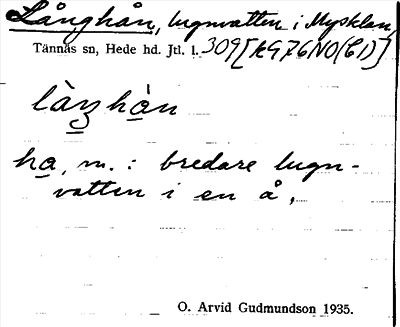 Långhån, lugnvatten i Mysklan,
Tännäs sn, Hede hd. Jtl. l. 309[kG76NO(C1)]
làŋhån
ha, m.: bredare lugn-
vatten i en å.
O. Arvid Gudmundson 1935.